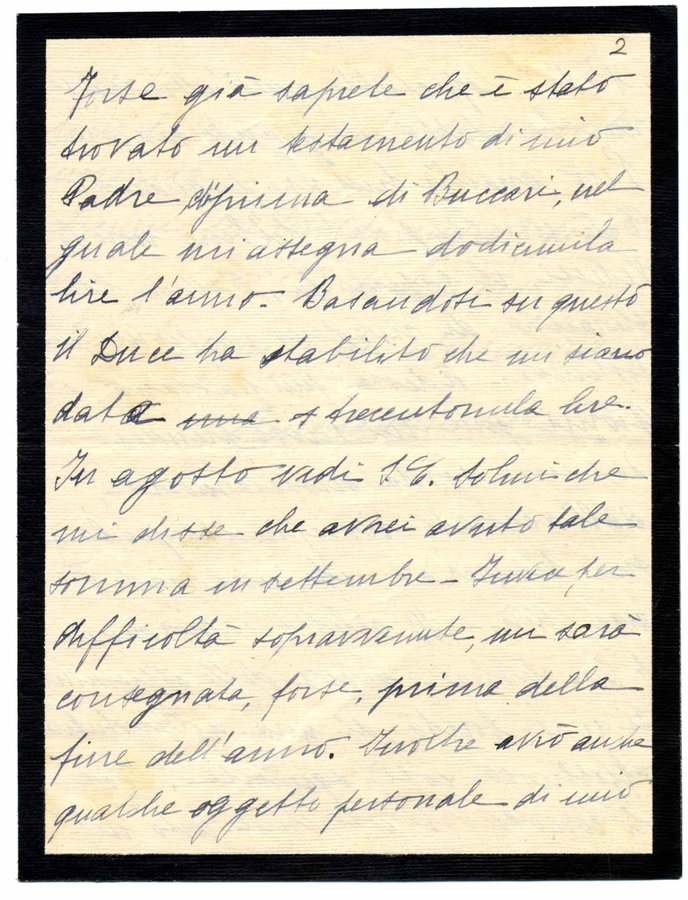 2
Forse già sapete che è stato
trovato un testamento di mio
Padre di prima di Buccari, nel
quale mi assegna dodicimila
lire l'anno. Basandosi su questo
il Duce ha stabilito che mi siano
date una trecentomila lire.
In agosto vidi S. E. Solmi che
mi disse che avrei avuto tale
somma in settembre - Invece per
difficoltà sopravvenute, mi sarà
consegnata, forse, prima della
fine dell'anno. Inoltre avrò anche
qualche oggetto personale di mio